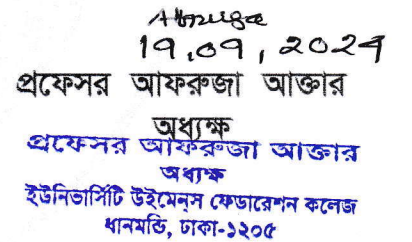 19.09.2024
প্রফেসর আফরুজা আক্তার
অধ্যক্ষ
প্রফেসর আফরুজা আক্তার
অধ্যক্ষ
ইউনিভার্সিটি উইমেন্‌স ফেডারেশন কলেজ
ধানমন্ডি, ঢাকা-১২০৫